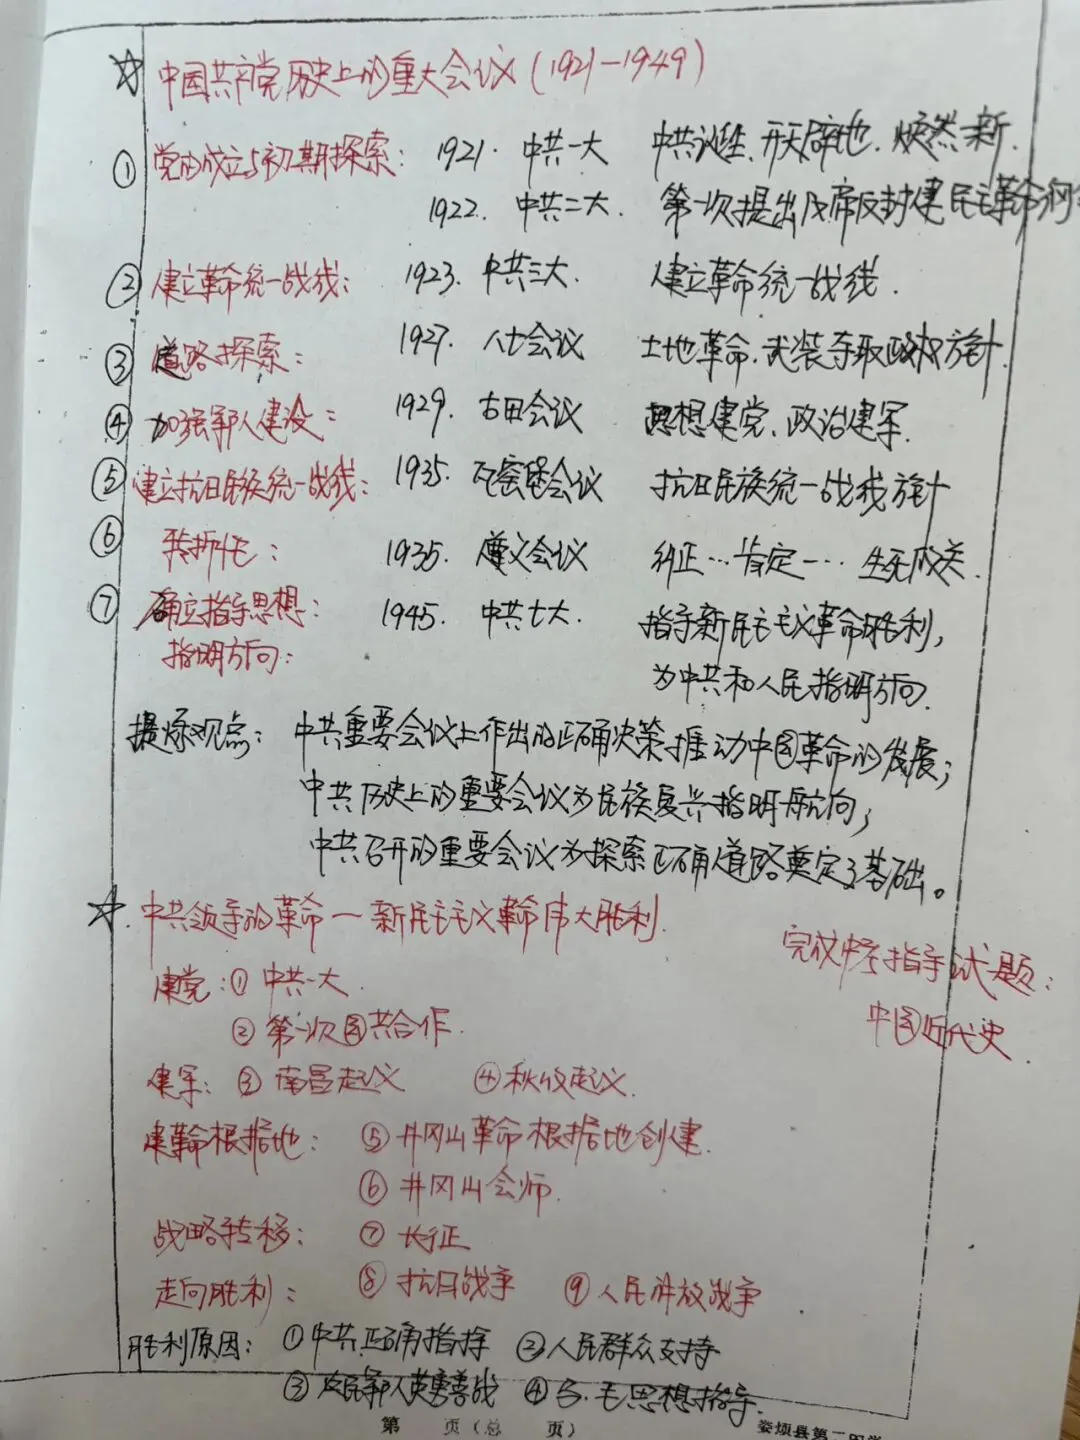 ☆ 中国共产党历史上的重大会议(1921-1949)
① 党的成立与初期探索: 1921. 中共一大 中共诞生、开天辟地、焕然一新.
1922. 中共二大. 第一次提出反帝反封建民主革命纲领
② 建立革命统一战线: 1923. 中共三大. 建立革命统一战线.
③ 道路探索: 1927. 八七会议 土地革命、武装夺取政权方针.
④ 加强军队建设: 1929. 古田会议 思想建党、政治建军.
⑤ 建立抗日民族统一战线: 1935. 瓦窑堡会议 抗日民族统一战线方针
⑥ 转折: 1935. 遵义会议 纠正…肯定一… 生死攸关.
⑦ 确立指导思想: 1945. 中共七大. 指导新民主主义革命胜利,
指明方向: 为中共和人民指明方向.
提炼观点: 中共重要会议上作出的正确决策推动中国革命的发展;
中共历史上的重要会议为民族复兴指明航向;
中共召开的重要会议为探索正确道路奠定了基础。
☆. 中共领导的革命—新民主主义革命伟大胜利.
完成中考指导试题:
建党: ① 中共一大.
中国近代史.
② 第一次国共合作.
建军: ③ 南昌起义 ④ 秋收起义.
建革命根据地: ⑤ 井冈山革命根据地创建.
⑥ 井冈山会师.
战略转移: ⑦ 长征
走向胜利: ⑧ 抗日战争 ⑨ 人民解放战争
胜利原因: ① 中共正确指挥 ② 人民群众支持
③ 人英勇善战 ④ 毛思想指导.
第 页(总 页) 娄烦县第二中学